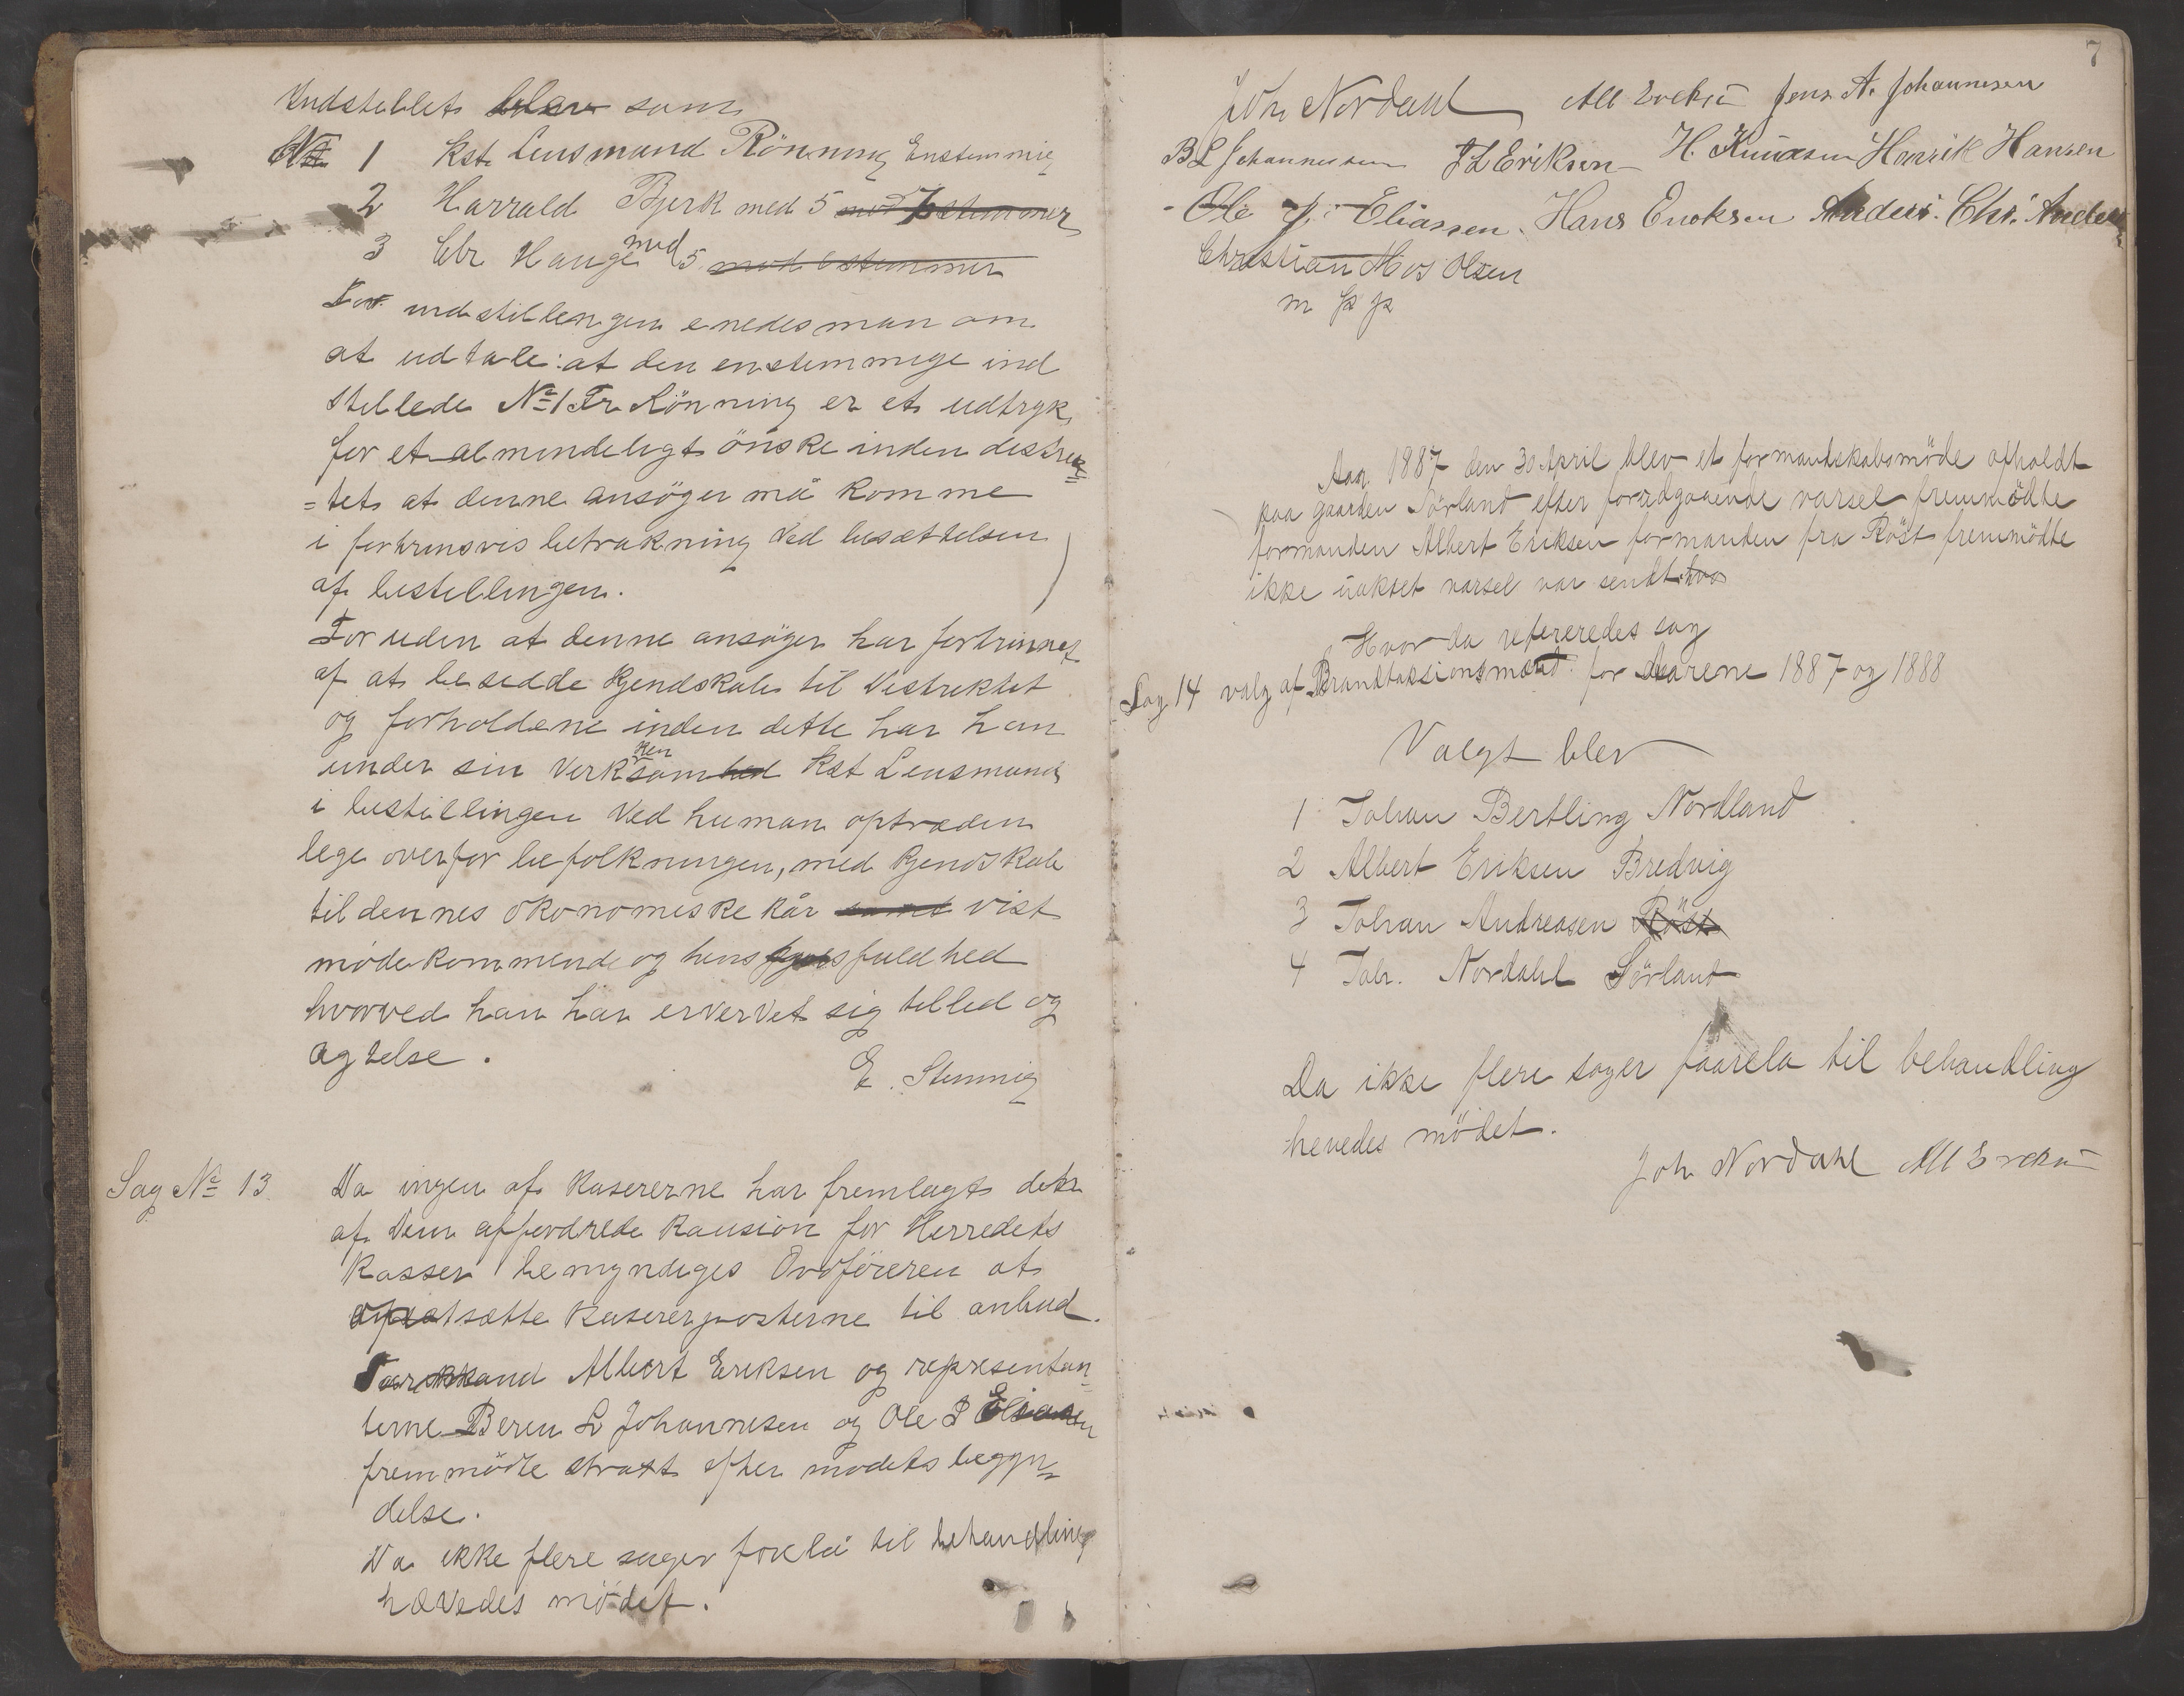 Indstillet blev som
No 1 kst Lensmand Rönning Enstemmig
2 Harrald Bjerk med 5 mod 7 stemmer
3 Chr Hauge med 5 mod 6 stemmer
For indstillingen enedes man om
at udtale: at den enstemmige ind
stillede No 1 Fr Rönning er et udtryk
for et almindeligt önske inden distrek
=tet at denne ansöger må komme
i fortrinsvis betrakning ved besættelsen
af bestillingen.
Foruden at denne ansöger har fortrinnet
af at besidde Kjendskab til Distriktet
og forholdene inden dette har han
under sin Verksomhed Kst Lensmand
i bestillingen Ved human optræden
lege overfor befolkningen, med Kjendskab
til dennes økonomiske kår samt vist
mødekommende og hensynsfuldhed
hvorved han har ervervet sig tillid og
agtelse.
E. Stemmig
Sag No 13 Da ingen af Kasererne har fremlagt den
af dem affordrede Kausion for Herredets
Kasser bemyndiges Ordföreren at
opsætte Kasererposterne til anbud.
Formand Albert Eriksen og representan
terne Beren L Johannesen og Ole J Eliasen
fremmödte strakt efter mødets begyn
delse.
Da ikke flere sager forelå til behandling
hævedes mödet.
7
Joh Nordahl Alb Eriksen Jens A. Johannesen
B L Johannesen J L Eriksen H. Knudsen Henrik Hansen
Ole J. Eliassen Hans Enoksen Anders. Chr. Anders
Christian Mos Olsen
m p p
Aar 1887 den 30 April blev et formandskabsmöde afholdt
paa gaarden Sörland efter foredgaaende varsel fremmödte
formanden Albert Eriksen formanden fra Röst fremmödte
ikke uaktet varsel var sendt
Hvor da refereredes sag
Sag 14 valg af Brandtaksionsmænd for aarene 1887 og 1888
Valgt blev
1 Johan Bertling Nordland
2 Albert Eriksen Bredvig
3 Johan Andreasen Röst
4 Joh. Nordahl Sörland
Da ikke flere sager foorela til behandling
hevedes mödet.
Joh Nordahl Alb Eriksen